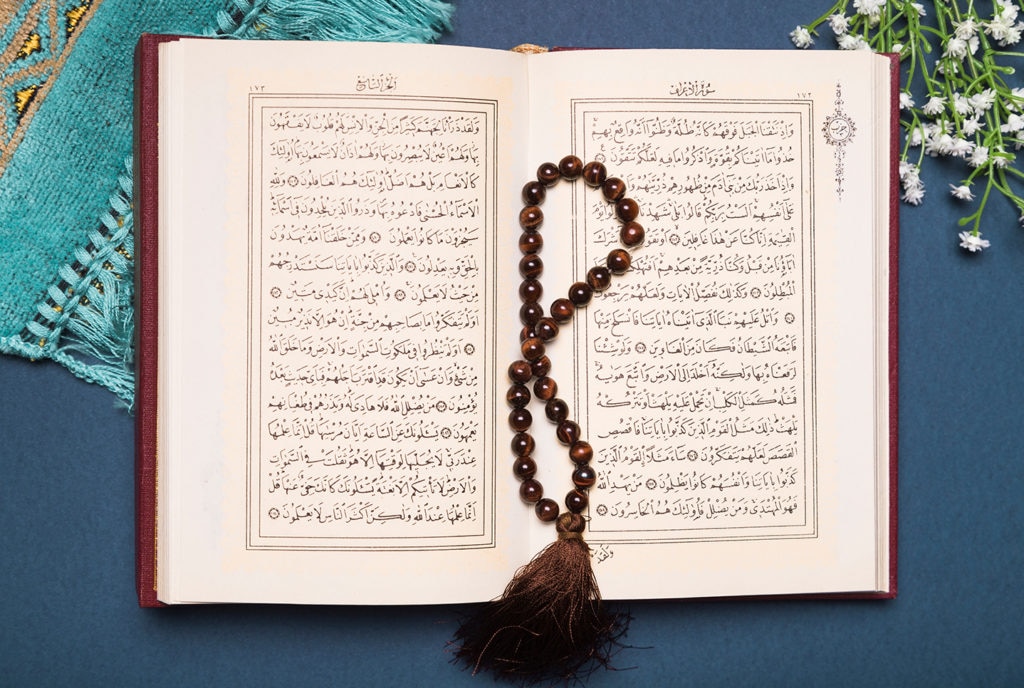 سُورَةُ الْأَعْرَافِ ١٧٢
حزب
وَإِذْ نَتَقْنَا الْجَبَلَ فَوْقَهُمْ كَأَنَّهُ ظُلَّةٌ وَظَنُّوا أَنَّهُ وَاقِعٌ بِهِمْ
خُذُوا مَا آتَيْنَاكُمْ بِقُوَّةٍ وَاذْكُرُوا مَا فِيهِ لَعَلَّكُمْ تَتَّقُونَ
وَإِذْ أَخَذَ رَبُّكَ مِنْ بَنِي آدَمَ مِنْ ظُهُورِهِمْ ذُرِّيَّتَهُمْ
عَلَى أَنْفُسِهِمْ أَلَسْتُ بِرَبِّكُمْ قَالُوا بَلَى شَهِدْنَا
الْقِيَامَةِ إِنَّا كُنَّا عَنْ هَذَا غَافِلِينَ أَوْ تَقُولُوا
آبَاؤُنَا مِنْ قَبْلُ وَكُنَّا ذُرِّيَّةً مِنْ بَعْدِهِمْ أَفَتُهْلِكُنَا
الْمُبْطِلُونَ وَكَذَلِكَ نُفَصِّلُ الْآيَاتِ وَلَعَلَّهُمْ يَرْجِعُونَ
وَاتْلُ عَلَيْهِمْ نَبَأَ الَّذِي آتَيْنَاهُ آيَاتِنَا فَانْسَلَخَ مِنْهَا
فَأَتْبَعَهُ الشَّيْطَانُ فَكَانَ مِنَ الْغَاوِينَ وَلَوْ شِئْنَا
لَرَفَعْنَاهُ بِهَا وَلَكِنَّهُ أَخْلَدَ إِلَى الْأَرْضِ وَاتَّبَعَ هَوَيهُ
فَمَثَلُهُ كَمَثَلِ الْكَلْبِ إِنْ تَحْمِلْ عَلَيْهِ يَلْهَثْ أَوْ تَتْرُكْهُ
يَلْهَثْ ذَلِكَ مَثَلُ الْقَوْمِ الَّذِينَ كَذَّبُوا بِآيَاتِنَا فَاقْصُصِ
الْقَصَصَ لَعَلَّهُمْ يَتَفَكَّرُونَ سَاءَ مَثَلًا الْقَوْمُ الَّذِينَ
كَذَّبُوا بِآيَاتِنَا وَأَنْفُسَهُمْ كَانُوا يَظْلِمُونَ مَنْ يَهْدِ اللَّهُ
فَهُوَ الْمُهْتَدِي وَمَنْ يُضْلِلْ فَأُولَئِكَ هُمُ الْخَاسِرُونَ
وَلَقَدْ
الْجُزْءُ التَّاسِعُ ١٧٣
وَلَقَدْ ذَرَأْنَا لِجَهَنَّمَ كَثِيرًا مِنَ الْجِنِّ وَالْإِنْسِ لَهُمْ قُلُوبٌ لَا يَفْقَهُونَ
بِهَا وَلَهُمْ أَعْيُنٌ لَا يُبْصِرُونَ بِهَا وَلَهُمْ آذَانٌ لَا يَسْمَعُونَ بِهَا أُولَئِكَ
كَالْأَنْعَامِ بَلْ هُمْ أَضَلُّ أُولَئِكَ هُمُ الْغَافِلُونَ وَلِلَّهِ
الْأَسْمَاءُ الْحُسْنَى فَادْعُوهُ بِهَا وَذَرُوا الَّذِينَ يُلْحِدُونَ فِي أَسْمَائِهِ
سَيُجْزَوْنَ مَا كَانُوا يَعْمَلُونَ وَمِمَّنْ خَلَقْنَا أُمَّةٌ يَهْدُونَ
بِالْحَقِّ وَبِهِ يَعْدِلُونَ وَالَّذِينَ كَذَّبُوا بِآيَاتِنَا سَنَسْتَدْرِجُهُمْ
مِنْ حَيْثُ لَا يَعْلَمُونَ وَأُمْلِي لَهُمْ إِنَّ كَيْدِي مَتِينٌ
أَوَلَمْ يَتَفَكَّرُوا مَا بِصَاحِبِهِمْ مِنْ جِنَّةٍ إِنْ هُوَ إِلَّا نَذِيرٌ مُبِينٌ
أَوَلَمْ يَنْظُرُوا فِي مَلَكُوتِ السَّمَوَاتِ وَالْأَرْضِ وَمَا خَلَقَ اللَّهُ
مِنْ شَيْءٍ وَأَنْ عَسَى أَنْ يَكُونَ قَدِ اقْتَرَبَ أَجَلُهُمْ فَبِأَيِّ حَدِيثٍ بَعْدَهُ
يُؤْمِنُونَ مَنْ يُضْلِلِ اللَّهُ فَلَا هَادِيَ لَهُ وَيَذَرُهُمْ فِي طُغْيَانِهِمْ
يَعْمَهُونَ يَسْأَلُونَكَ عَنِ السَّاعَةِ أَيَّانَ مُرْسَيهَا قُلْ إِنَّمَا عِلْمُهَا
عِنْدَ رَبِّي لَا يُجَلِّيهَا لِوَقْتِهَا إِلَّا هُوَ ثَقُلَتْ فِي السَّمَوَاتِ
وَالْأَرْضِ لَا تَأْتِيكُمْ إِلَّا بَغْتَةً يَسْأَلُونَكَ كَأَنَّكَ حَفِيٌّ عَنْهَا قُلْ
إِنَّمَا عِلْمُهَا عِنْدَ اللَّهِ وَلَكِنَّ أَكْثَرَ النَّاسِ لَا يَعْلَمُونَ